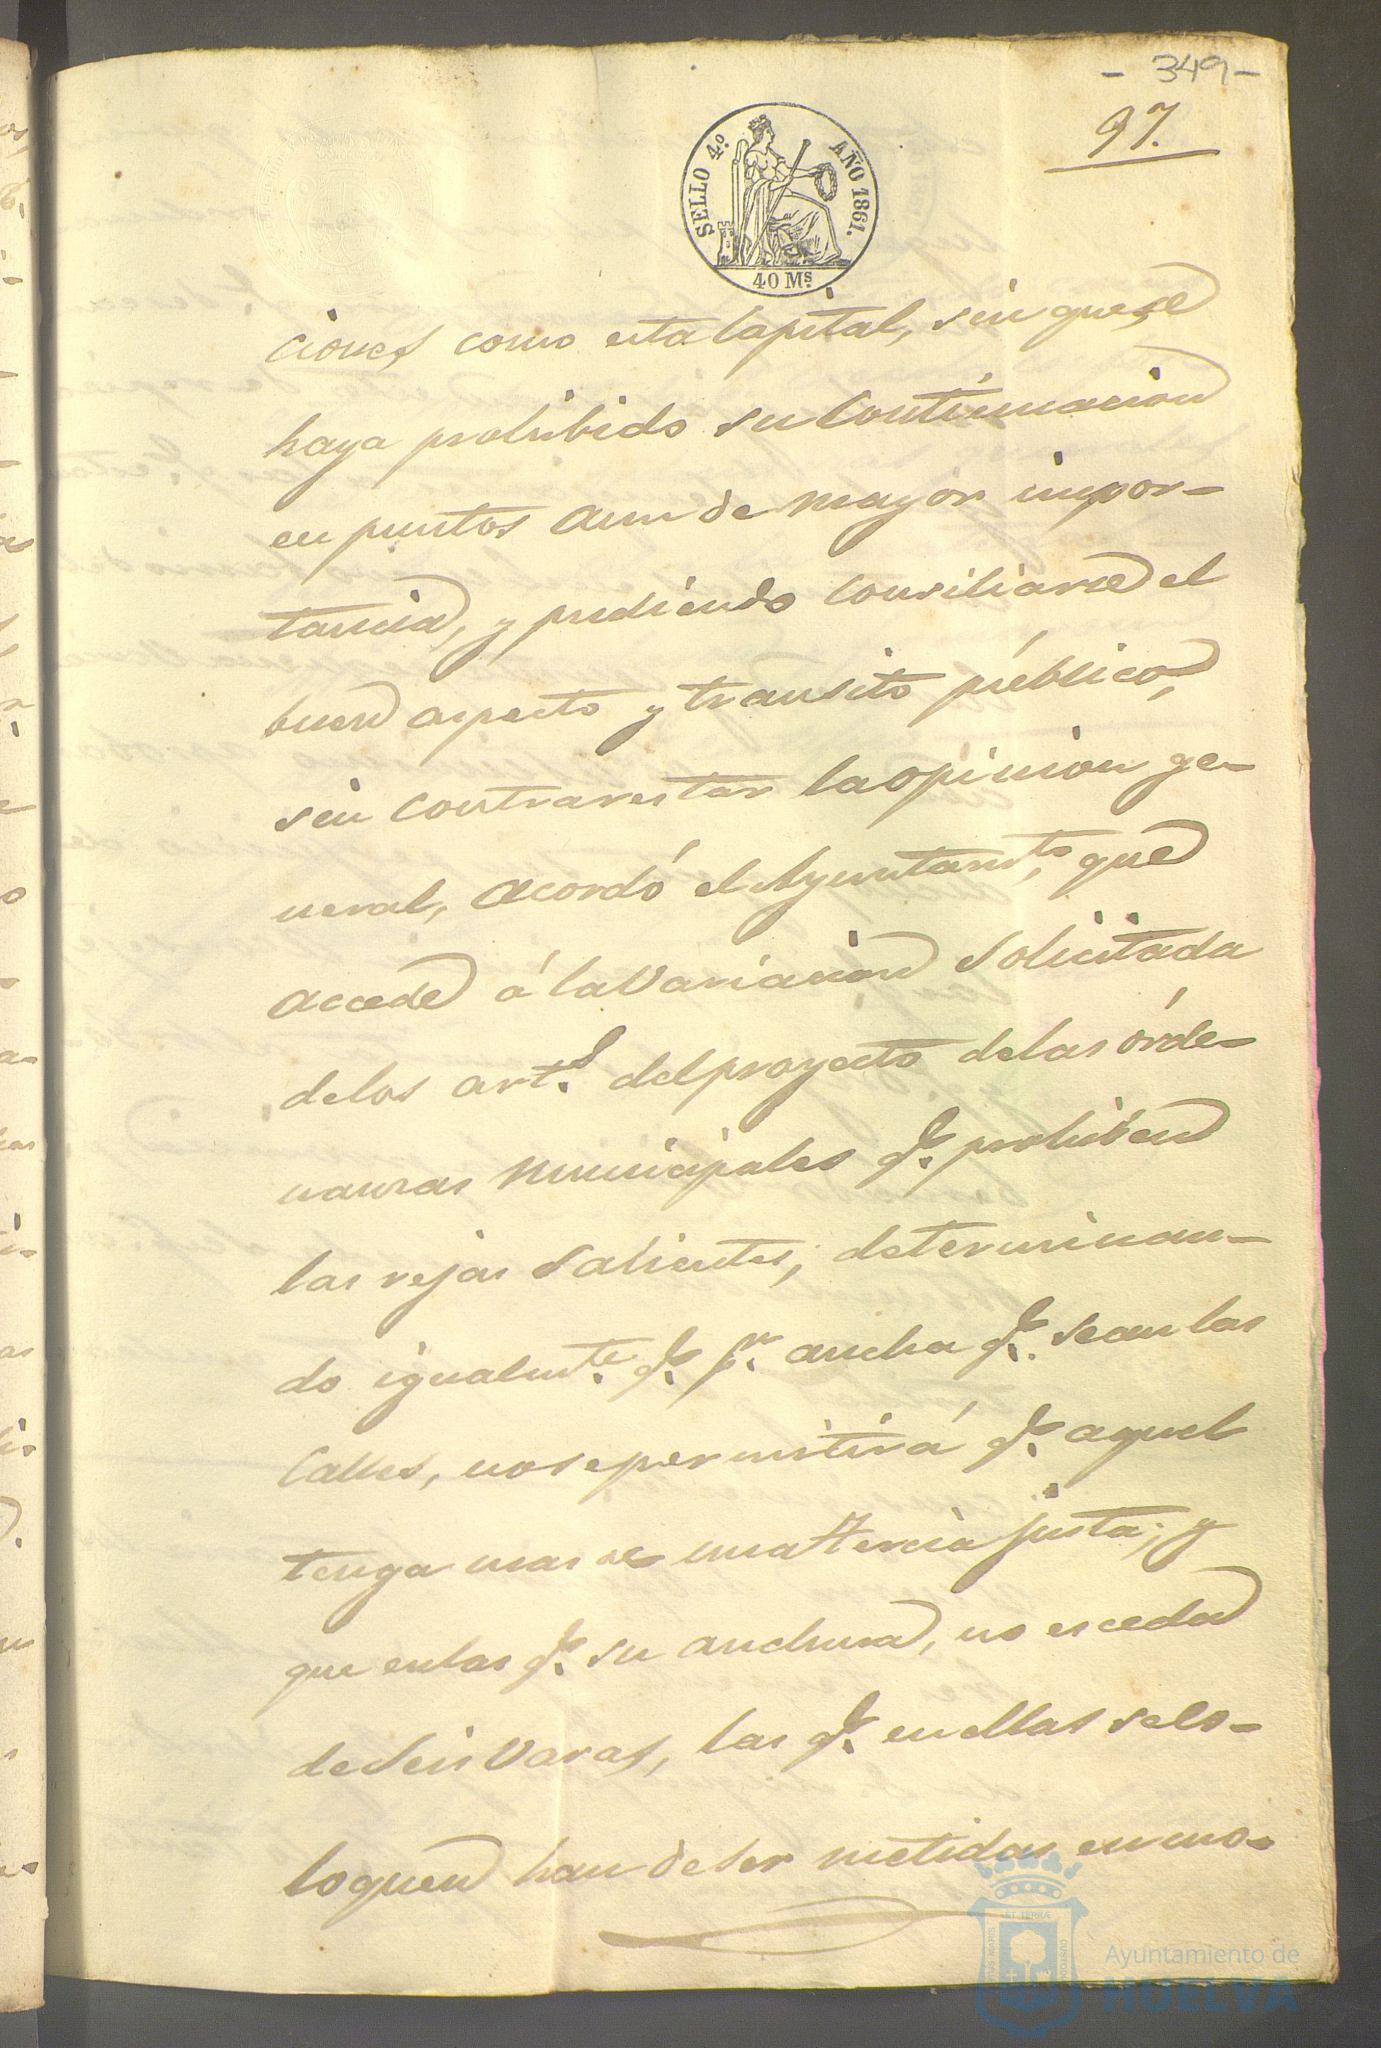 - 349 -
97.
SELLO 4.º AÑO 1861.
40 Ms.
ciones como esta Capital, sin que se
haya prohibido su Continuacion
en puntos aun de mayor impor-
tancia, y pudiendo Consiliarse el
buen aspecto y transito público,
sin contrarestar la opinion ge-
neral, acordó el Ayuntamto, que
accede á la Variacion Solicitada
de los arts. del proyecto de las órde-
nanzas Municipales q.e prohiben
las rejas Salientes, determinan-
do igualmte. q.e pr. ancha q.e sean las
Calles, no se permitirá q.e aquel
tenga mas de una tercia justa; y
que en las q.e su anchura, no esceda
de Seis Varas, las q.e en ellas se co-
loquen han de ser metidas en mo-
Ayuntamiento de
HUELVA